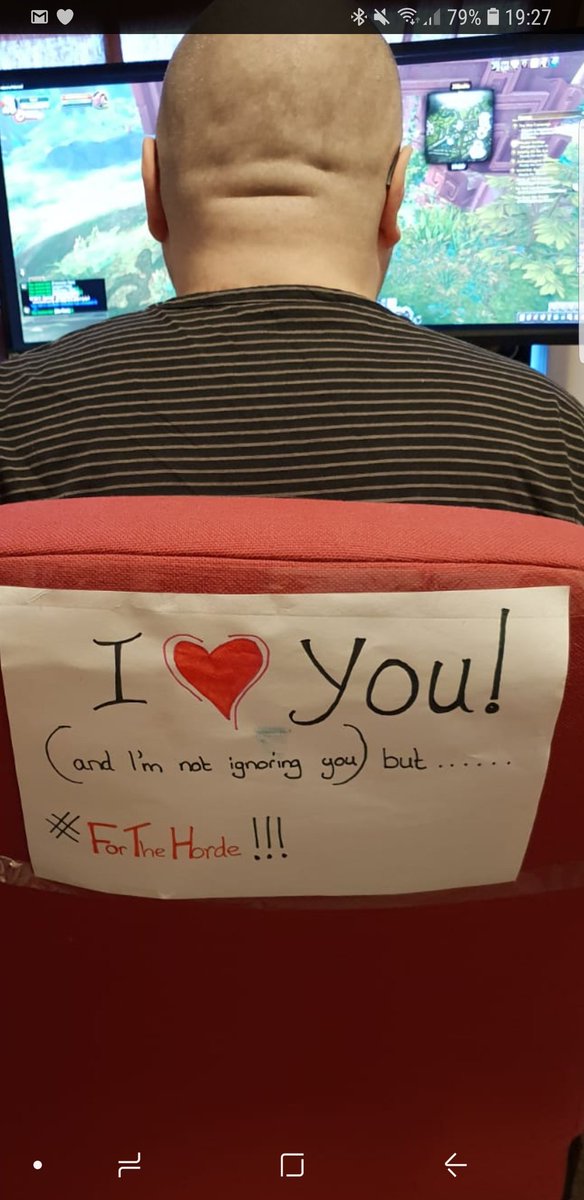 79% 19:27
I ❤ You!
(and I'm not ignoring you) but ......
#ForTheHorde!!!